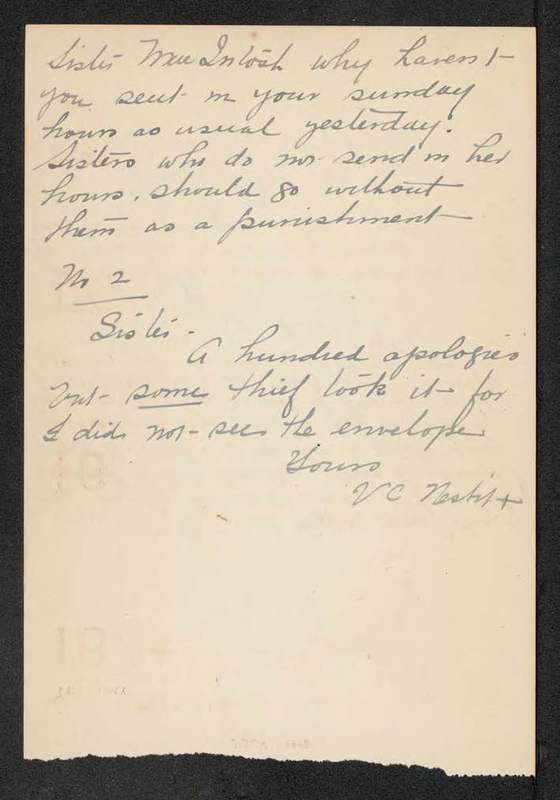 Sister MacIntosh why havent
you sent in your sunday
hours as usual yesterday.
Sisters who do not send in her
hours. should go without
them as a punishment
No 2
Sister.
A hundred apologies
but some thief took it for
I did not see the envelope
Yours
V C